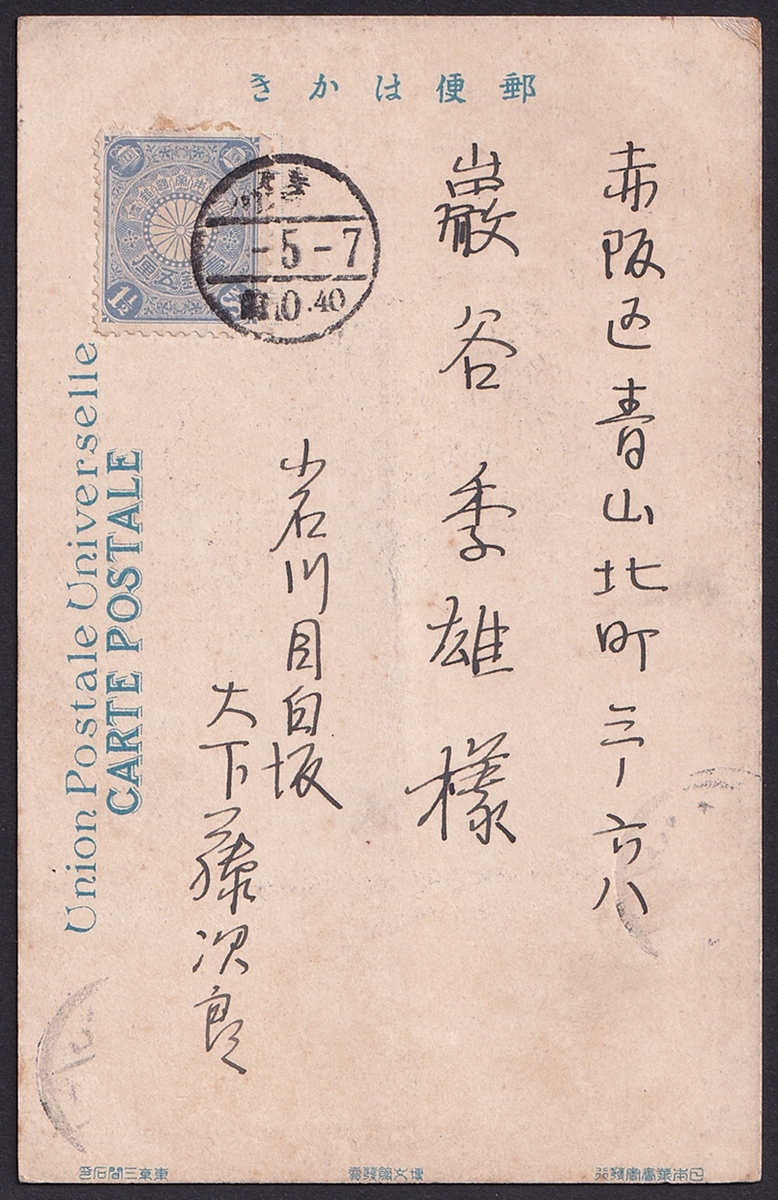 郵便はかき
赤阪区青山北町三ノ六八
巌谷季雄様
小石川目白坂
大下藤次郎
-5-7
0.40
1½
Union Postale Universelle
CARTE POSTALE